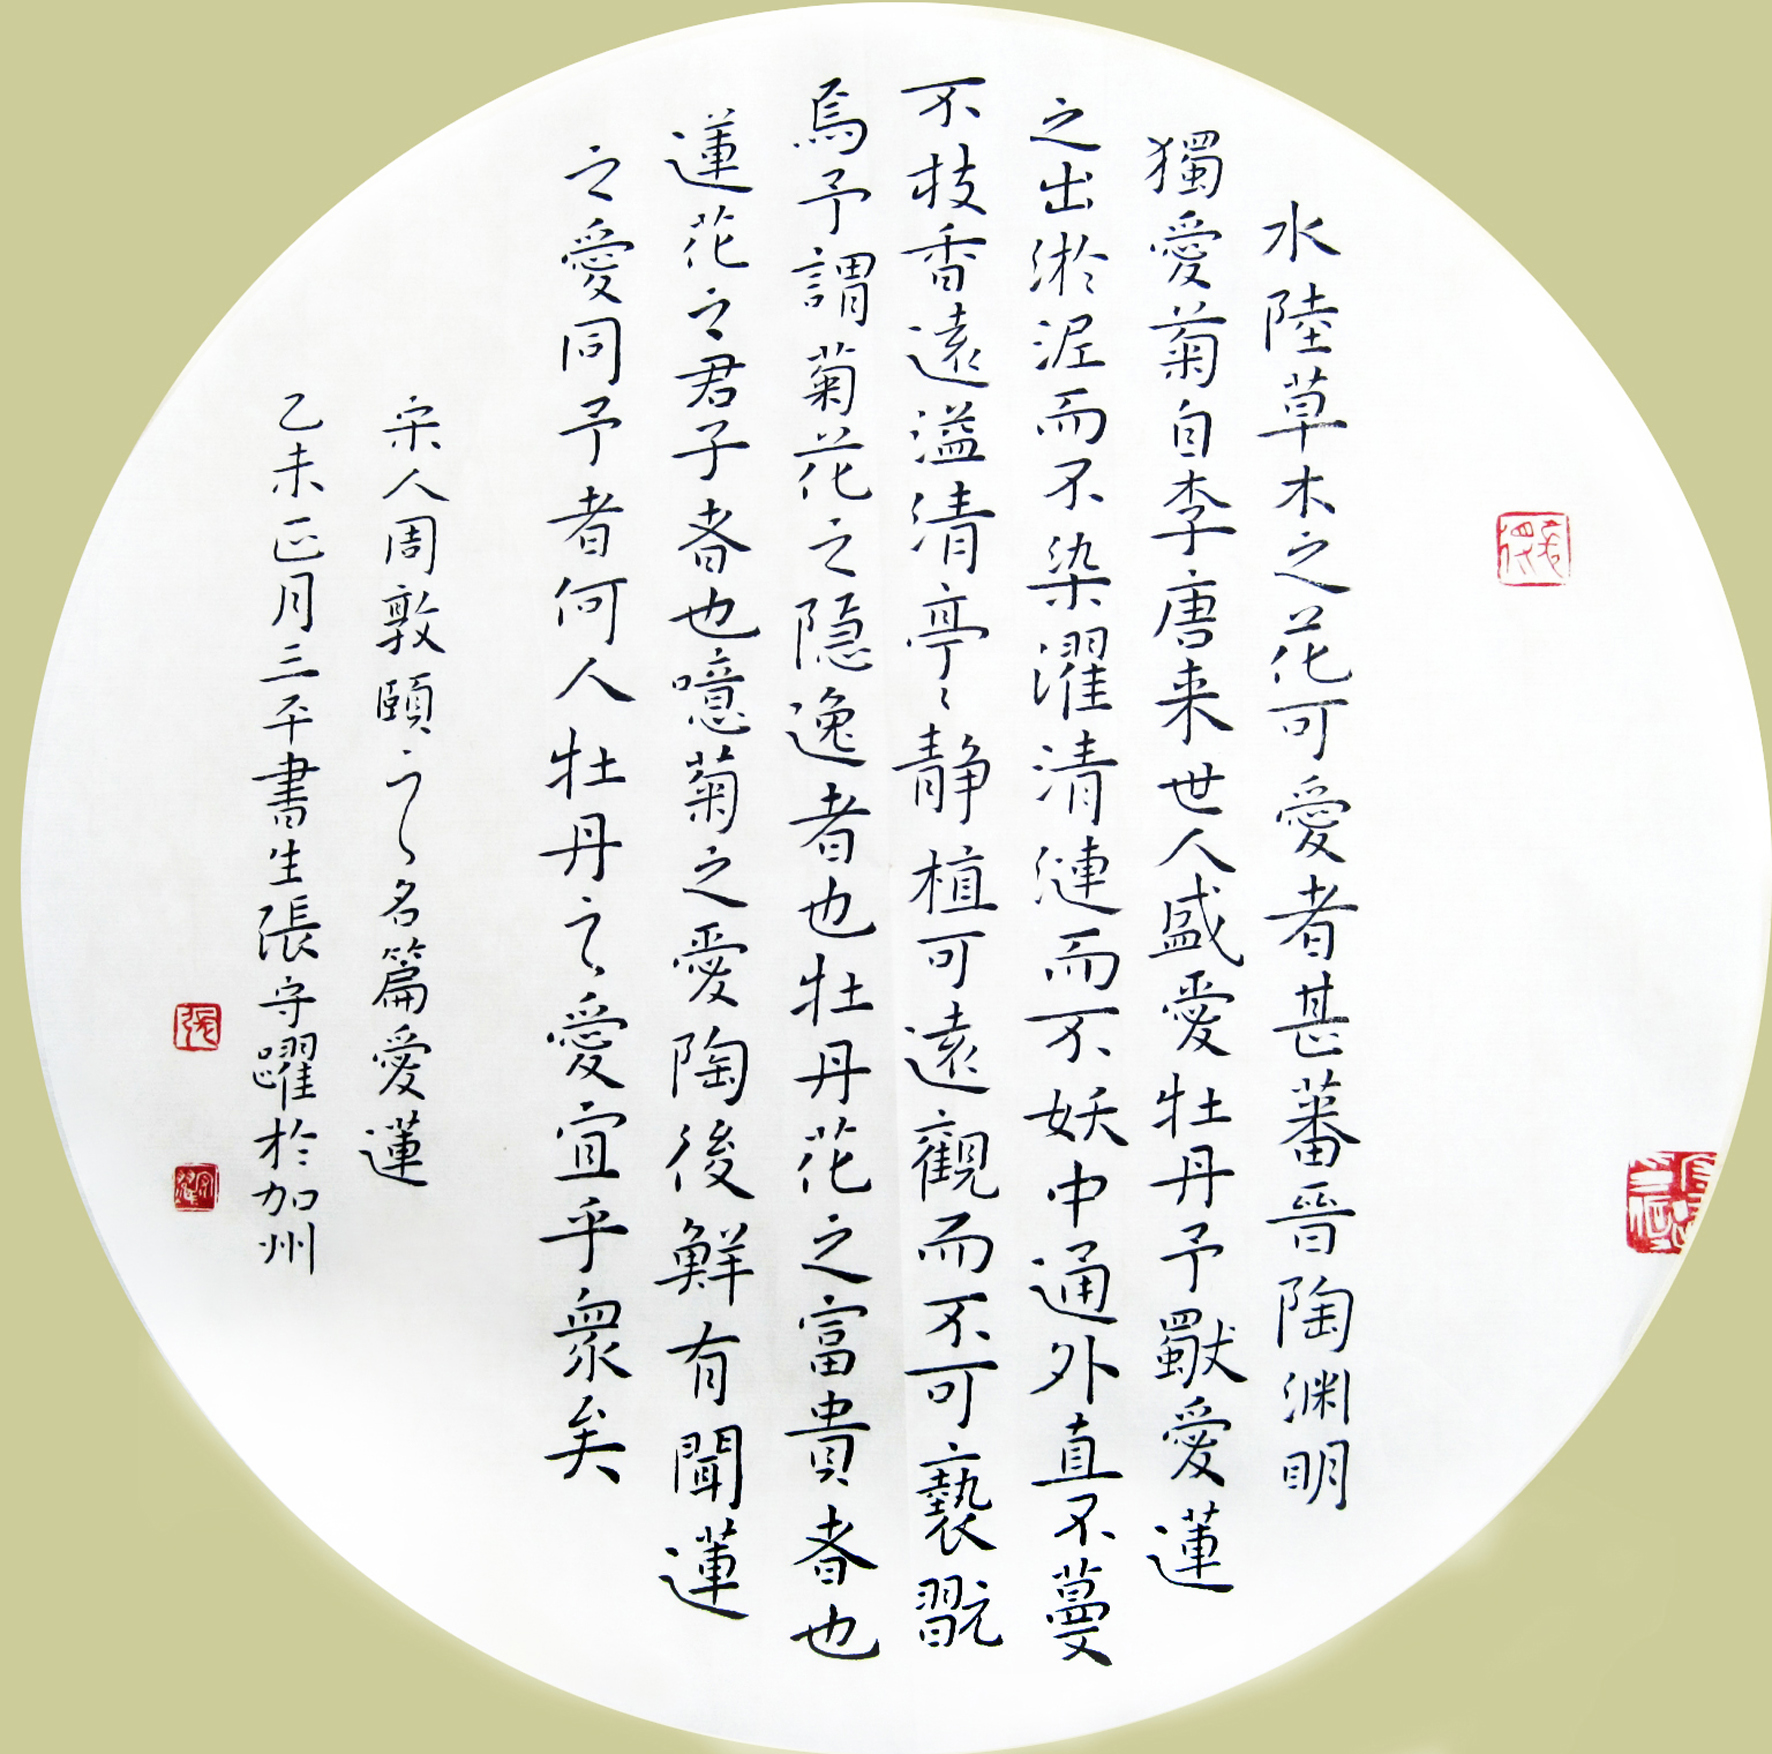 水陸草木之花可愛者甚蕃晉陶渊明
獨愛菊自李唐来世人盛愛牡丹予獨愛蓮
之出淤泥而不染濯清漣而不妖中通外直不蔓
不枝香遠溢清亭〻静植可遠觀而不可褻翫
焉予謂菊花之隐逸者也牡丹花之富貴者也
蓮花之君子者也噫菊之愛陶後鮮有聞蓮
之愛同予者何人牡丹之愛宜乎衆矣
宋人周敦頤之名篇愛蓮
乙未正月三平書生張守躍於加州